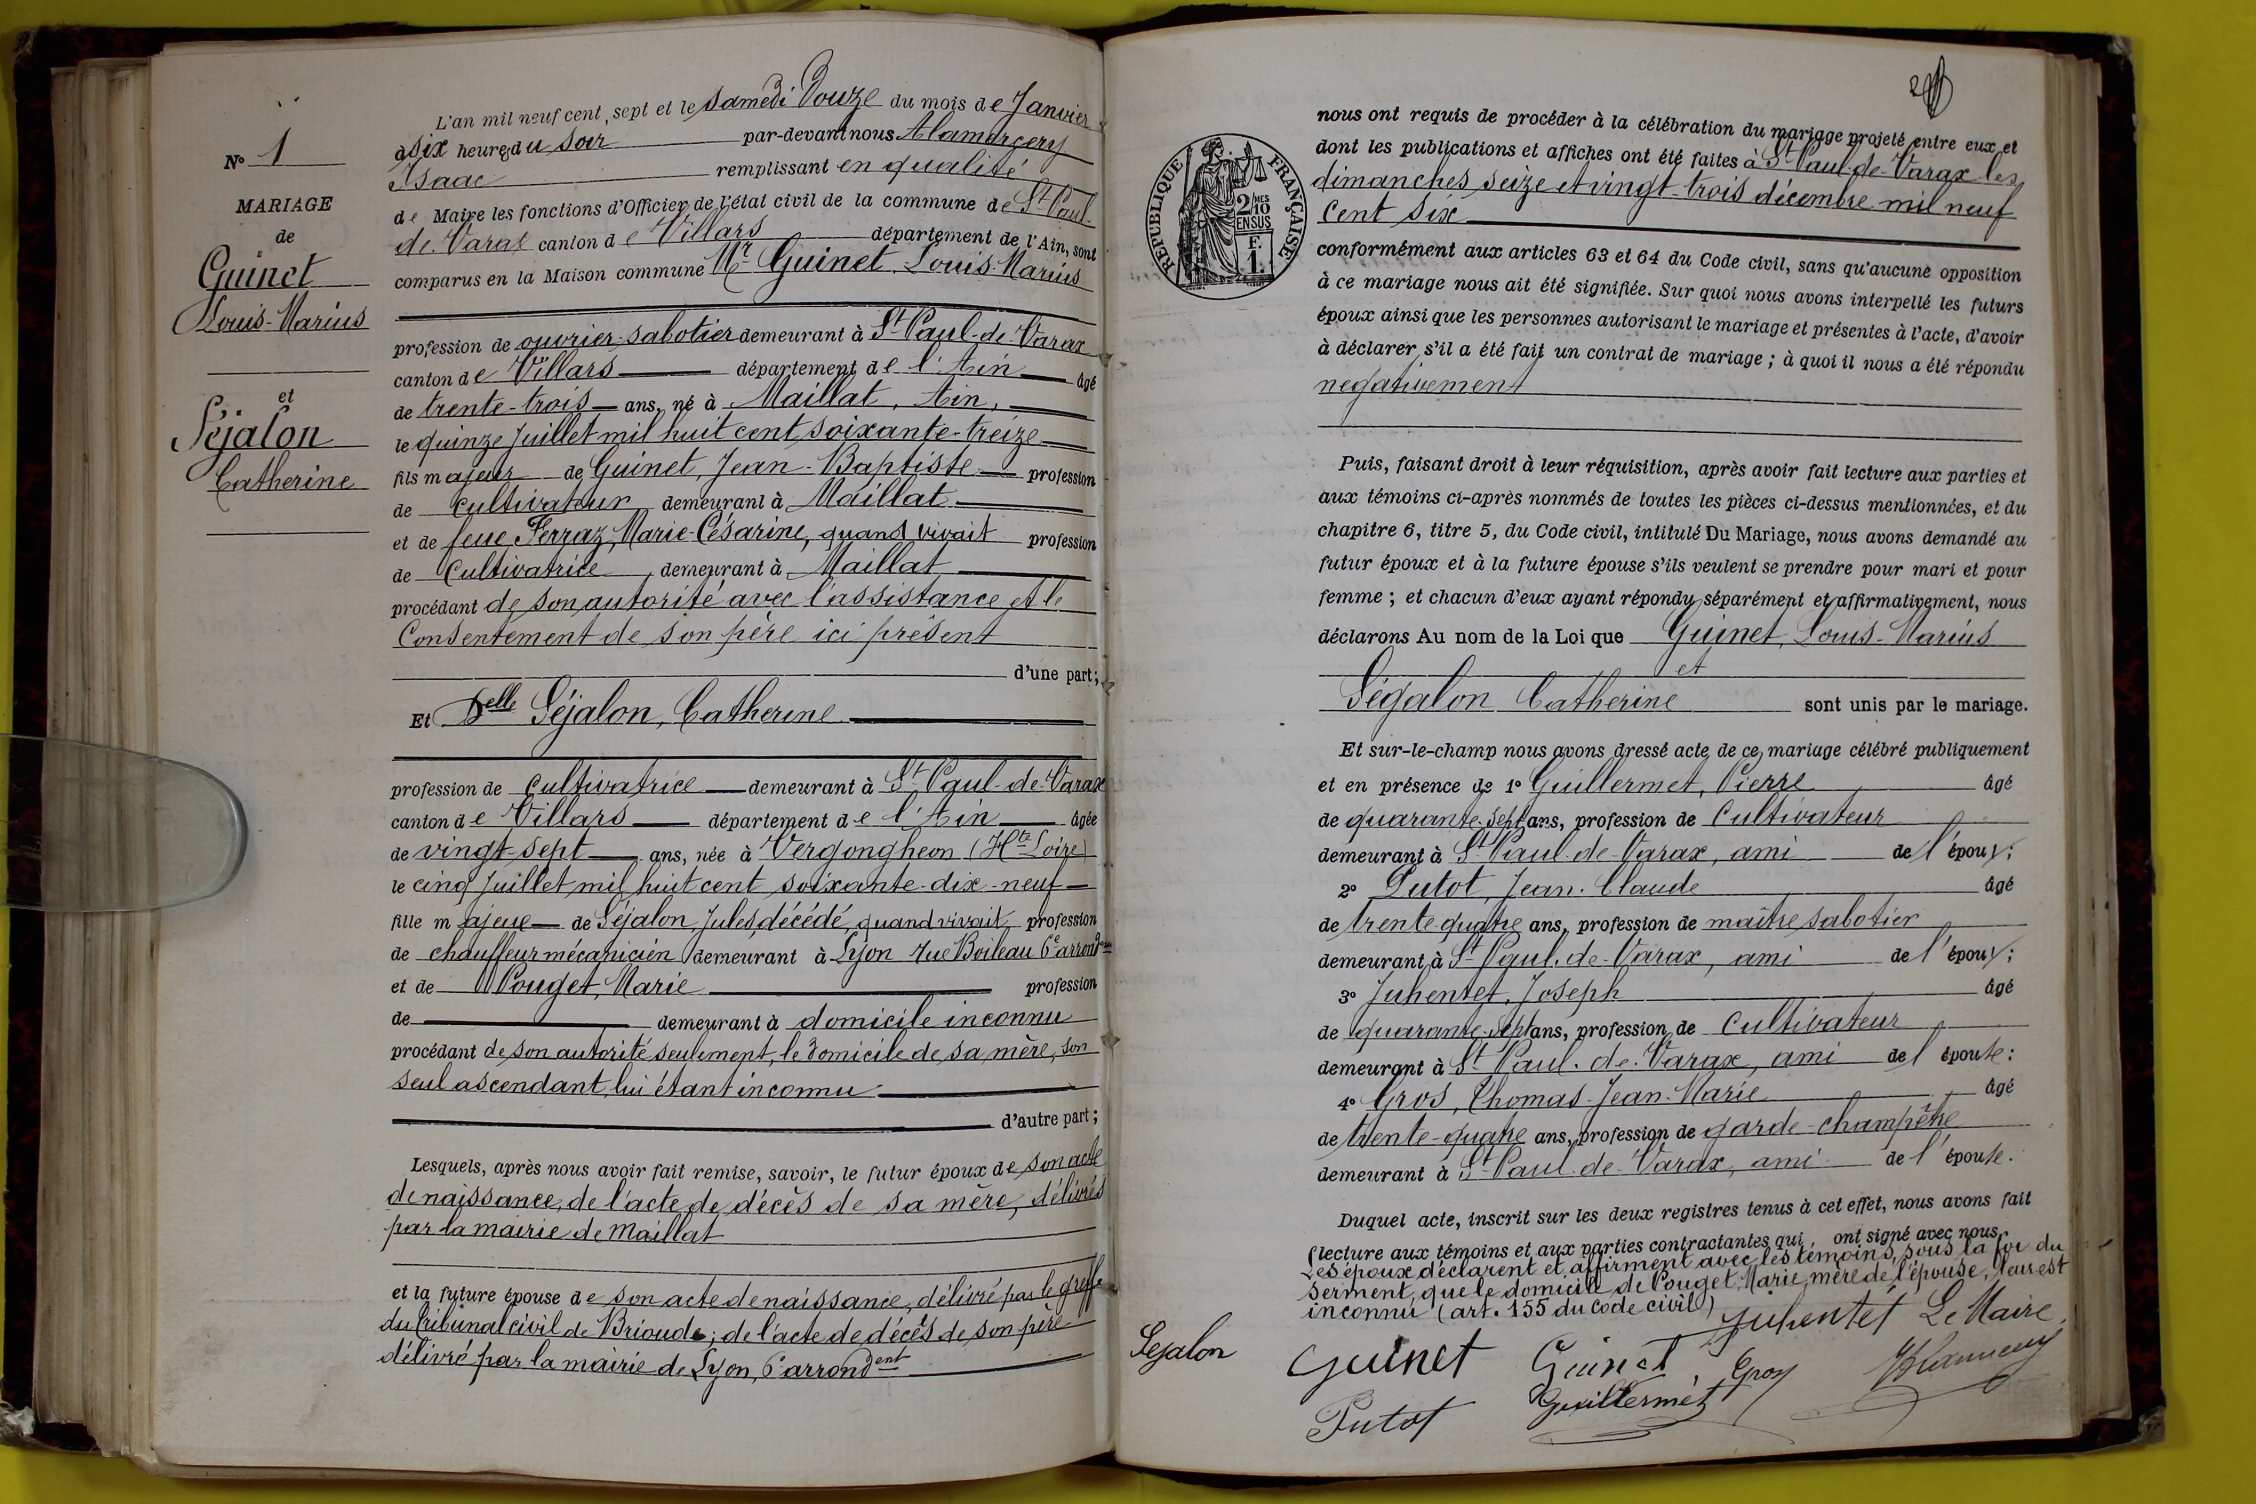 L'an mil neuf cent sept et le samedi Douze du mois de Janvier
à six heures du soir par-devant nous Alamerçery
Isaac remplissant en qualité
de Maire les fonctions d'Officier de l'état civil de la commune de St Paul-
de Varax canton de Villars département de l'Ain, sont
comparus en la Maison commune Mr Guinet Louis-Marius
N° 1
MARIAGE
de
Guinet
Louis-Marius
et
Séjalon
Catherine
profession de ouvrier-sabotier demeurant à St Paul-de-Varax
canton de Villars département de l'Ain âgé
de trente-trois ans, né à Maillat, Ain,
le quinze Juillet mil huit cent soixante-treize
fils majeur de Guinet, Jean-Baptiste profession
de cultivateur demeurant à Maillat
et de feue Ferraz, Marie-Césarine, quand vivait profession
de Cultivatrice demeurant à Maillat
procédant de son autorité avec l'assistance et le
Consentement de son père ici présent
d'une part;
Et Delle Séjalon, Catherine
profession de cultivatrice demeurant à St Paul-de-Varax
canton de Villars département de l'Ain âgée
de vingt-sept ans, née à Vergongheon (Hte Loire)
le cinq Juillet mil huit cent soixante-dix-neuf
fille majeue de Séjalon, Jules décédé, quand vivait profession
de chauffeur mécanicien demeurant à Lyon rue Boileau 6e arrondt
et de Pouget, Marie profession
de demeurant à domicile inconnu
procédant de son autorité seulement, le domicile de sa mère, son
seul ascendant, lui étant inconnu
d'autre part;
Lesquels, après nous avoir fait remise, savoir, le futur époux de son acte
de naissance, de l'acte de décès de sa mère, délivrés
par la mairie de Maillat
et la future épouse de son acte de naissance, délivré par le greffe
du Tribunal civil de Brioude; de l'acte de décès de son père
délivré par la mairie de Lyon, 6e arrondent
2
RÉPUBLIQUE FRANÇAISE
2/10 MES
EN SUS
F.
1.
nous ont requis de procéder à la célébration du mariage projeté entre eux et
dont les publications et affiches ont été faites à St Paul-de-Varax les
dimanches seize et vingt-trois décembre mil neuf
cent six
conformément aux articles 63 et 64 du Code civil, sans qu'aucune opposition
à ce mariage nous ait été signifiée. Sur quoi nous avons interpellé les futurs
époux ainsi que les personnes autorisant le mariage et présentes à l'acte, d'avoir
à déclarer s'il a été fait un contrat de mariage; à quoi il nous a été répondu
negativement
Puis, faisant droit à leur réquisition, après avoir fait lecture aux parties et
aux témoins ci-après nommés de toutes les pièces ci-dessus mentionnées, et du
chapitre 6, titre 5, du Code civil, intitulé Du Mariage, nous avons demandé au
futur époux et à la future épouse s'ils veulent se prendre pour mari et pour
femme; et chacun d'eux ayant répondu séparément et affirmativement, nous
déclarons Au nom de la Loi que Guinet, Louis-Marius
et
Ségalon Catherine sont unis par le mariage.
Et sur-le-champ nous avons dressé acte de ce mariage célébré publiquement
et en présence de 1° Guillermet, Pierre âgé
de quarante-sept ans, profession de Cultivateur
demeurant à St Paul-de-Varax, ami de l'époux;
2° Putot, Jean-Claude âgé
de trente-quatre ans, profession de maître sabotier
demeurant à St Paul-de-Varax, ami de l'époux;
3° Juhentet, Joseph âgé
de quarante-sept ans, profession de Cultivateur
demeurant à St Paul-de-Varax, ami de l'épouse:
4° Gros, Thomas-Jean-Marie âgé
de trente-quatre ans, profession de garde-champêtre
demeurant à St Paul-de-Varax, ami de l'épouse.
Duquel acte, inscrit sur les deux registres tenus à cet effet, nous avons fait
lecture aux témoins et aux parties contractantes qui ont signé avec nous.
Les époux déclarent et affirment avec les témoins, sous la foi du
serment, que le domicile de Pouget, Marie, mère de l'épouse, leur est
inconnu (art. 155 du Code civil)
Juhentet Le Maire,
Sejalon Guinet Guinet Gros
Putot Guillermet